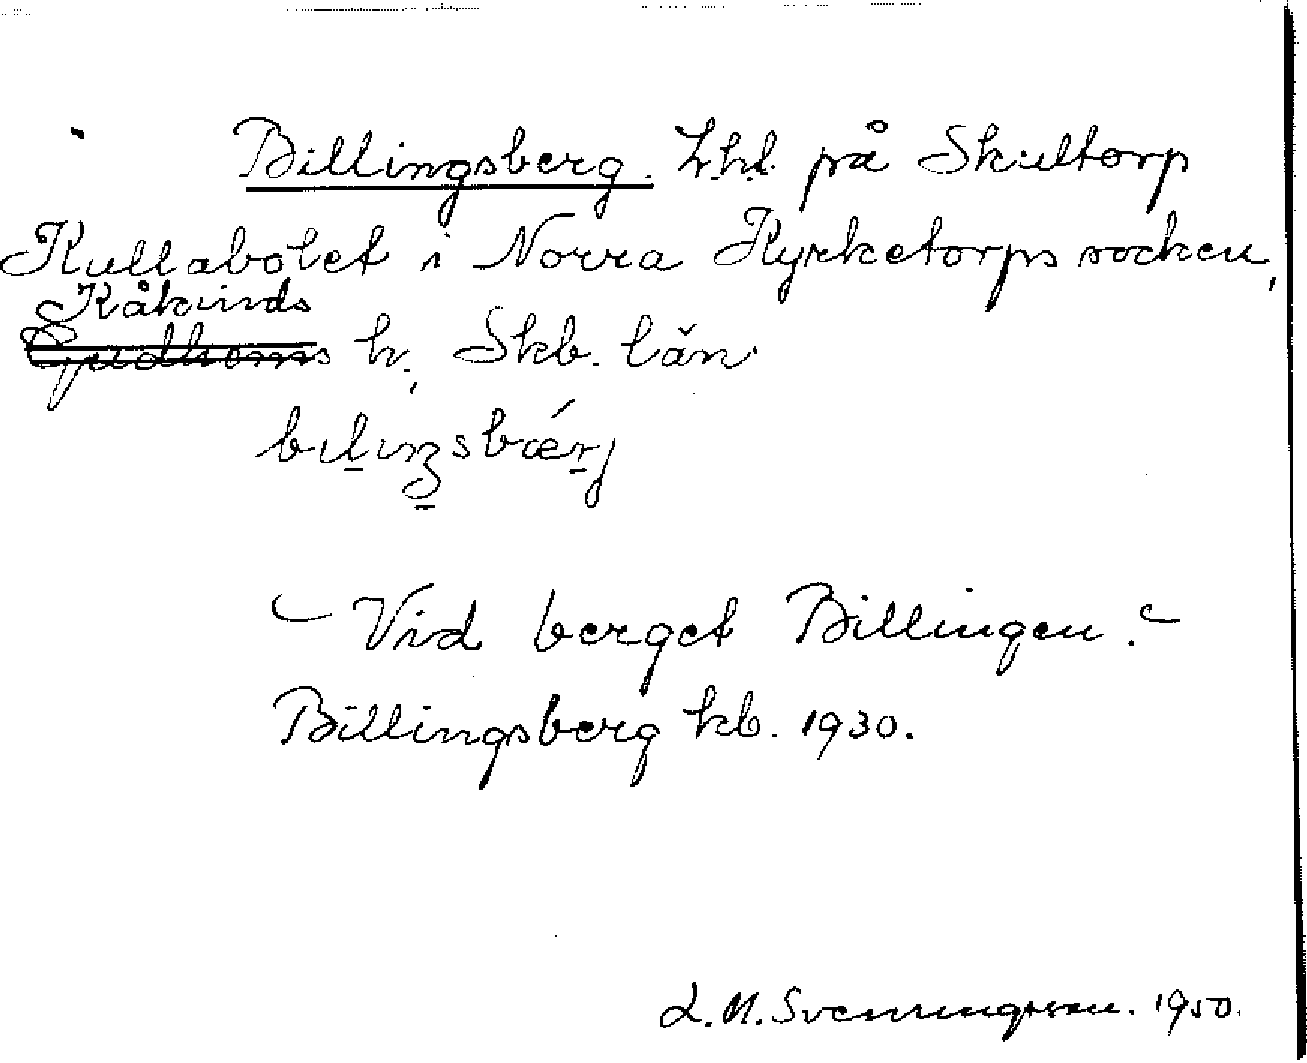 Billingsberg. Lht. på Skultorp
Kullabolet i Norra Kyrketorps socken,
Kåkinds
Gudhems h., Skb. län.
bılıŋsbǽrj
– Vid berget Billingen. –
Billingsberg kb. 1930.
L. M. Svenungsson. 1950.